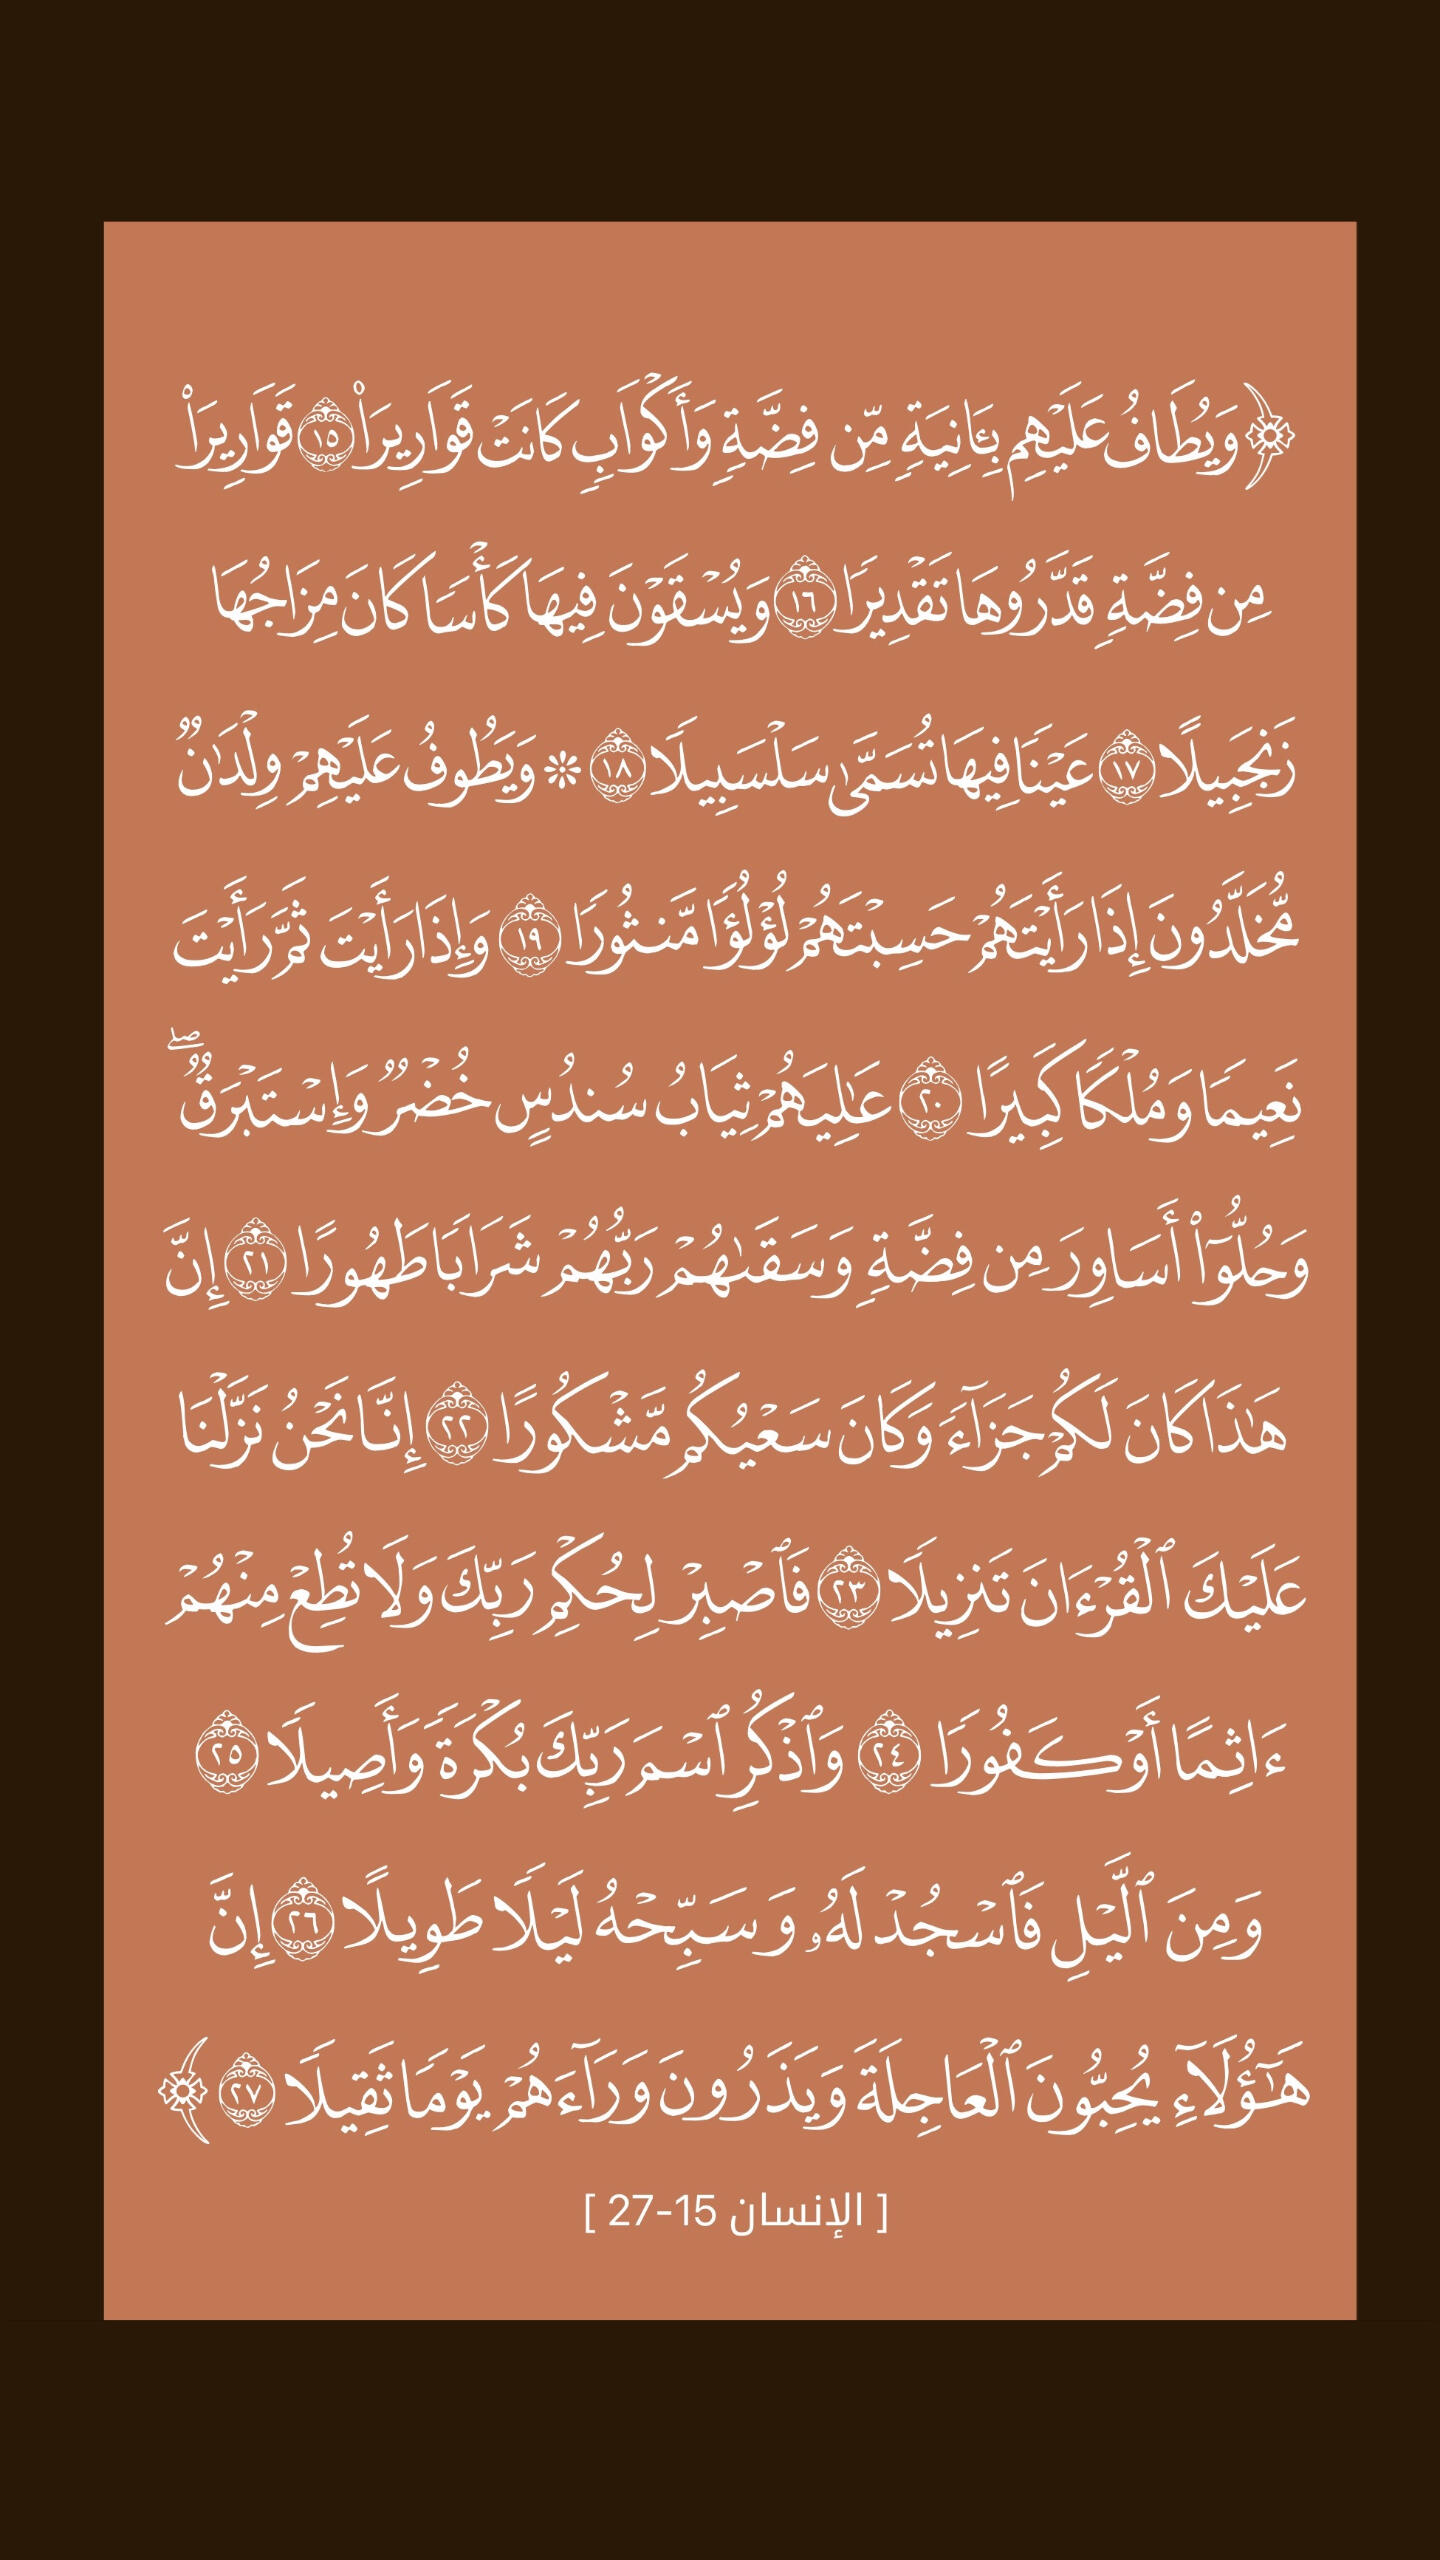 ﴿وَيُطَافُ عَلَيْهِم بِـَٔانِيَةٍ مِّن فِضَّةٍ وَأَكْوَابٍ كَانَتْ قَوَارِيرَا۠ ١٥ قَوَارِيرَا۟
مِن فِضَّةٍ قَدَّرُوهَا تَقْدِيرًا ١٦ وَيُسْقَوْنَ فِيهَا كَأْسًا كَانَ مِزَاجُهَا
زَنجَبِيلًا ١٧ عَيْنًا فِيهَا تُسَمَّىٰ سَلْسَبِيلًا ١٨ ۞ وَيَطُوفُ عَلَيْهِمْ وِلْدَٰنٌ
مُّخَلَّدُونَ إِذَا رَأَيْتَهُمْ حَسِبْتَهُمْ لُؤْلُؤًا مَّنثُورًا ١٩ وَإِذَا رَأَيْتَ ثَمَّ رَأَيْتَ
نَعِيمًا وَمُلْكًا كَبِيرًا ٢٠ عَٰلِيَهُمْ ثِيَابُ سُندُسٍ خُضْرٌ وَإِسْتَبْرَقٌۖ
وَحُلُّوٓا۟ أَسَاوِرَ مِن فِضَّةٍ وَسَقَىٰهُمْ رَبُّهُمْ شَرَابًا طَهُورًا ٢١ إِنَّ
هَٰذَا كَانَ لَكُمْ جَزَآءً وَكَانَ سَعْيُكُم مَّشْكُورًا ٢٢ إِنَّا نَحْنُ نَزَّلْنَا
عَلَيْكَ ٱلْقُرْءَانَ تَنزِيلًا ٢٣ فَٱصْبِرْ لِحُكْمِ رَبِّكَ وَلَا تُطِعْ مِنْهُمْ
ءَاثِمًا أَوْ كَفُورًا ٢٤ وَٱذْكُرِ ٱسْمَ رَبِّكَ بُكْرَةً وَأَصِيلًا ٢٥
وَمِنَ ٱلَّيْلِ فَٱسْجُدْ لَهُۥ وَسَبِّحْهُ لَيْلًا طَوِيلًا ٢٦ إِنَّ
هَٰٓؤُلَآءِ يُحِبُّونَ ٱلْعَاجِلَةَ وَيَذَرُونَ وَرَآءَهُمْ يَوْمًا ثَقِيلًا ٢٧﴾
[ الإنسان 15-27 ]